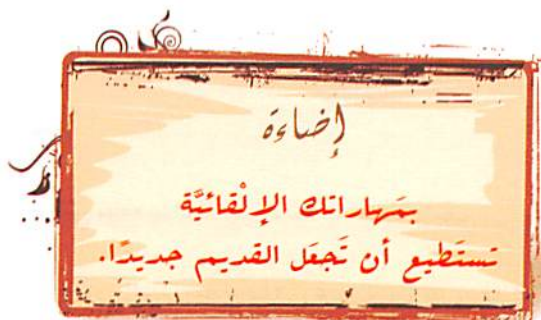 إضاءة
بمَهاراتك الإلْقائيَّة
تستَطيع أن تَجعَل القديم جديدًا.